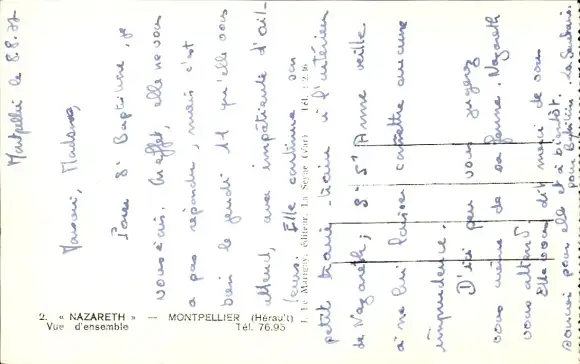 Montpellier le 8.8.77
Monsieur, Madame,
Pour Sr Baptistine, je
vous écris. En effet, elle ne vous
a pas répondu, mais c'est
bien le jeudi 11 qu'elle vous
attend, avec impatience d'ail-
leurs. Elle continue son
petit train-train à l'intérieur
de Nazareth; Sr St Anne veille
à ne lui laisser commettre aucune
imprudence.
D'ici peu vous jugerez
vous même de sa forme. Nazareth
vous attend.
Elle vous dit merci de vous
pour elle et à bientôt.
pour Baptistine. La Secrétaire.
I. Le Marigny, éditeur, La Seyne (Var) Tél.
2. « NAZARETH » — MONTPELLIER (Hérault)
Vue d'ensemble Tél. 76.95